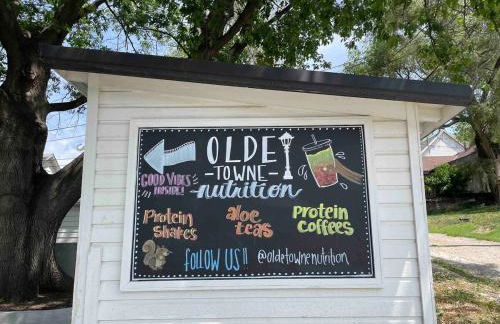 OLDE
TOWNE
nutrition
GOOD VIBES
Protein
Shakes
aloe
teas
protein
coffees
FOLLOW US!! @oldetownenutrition